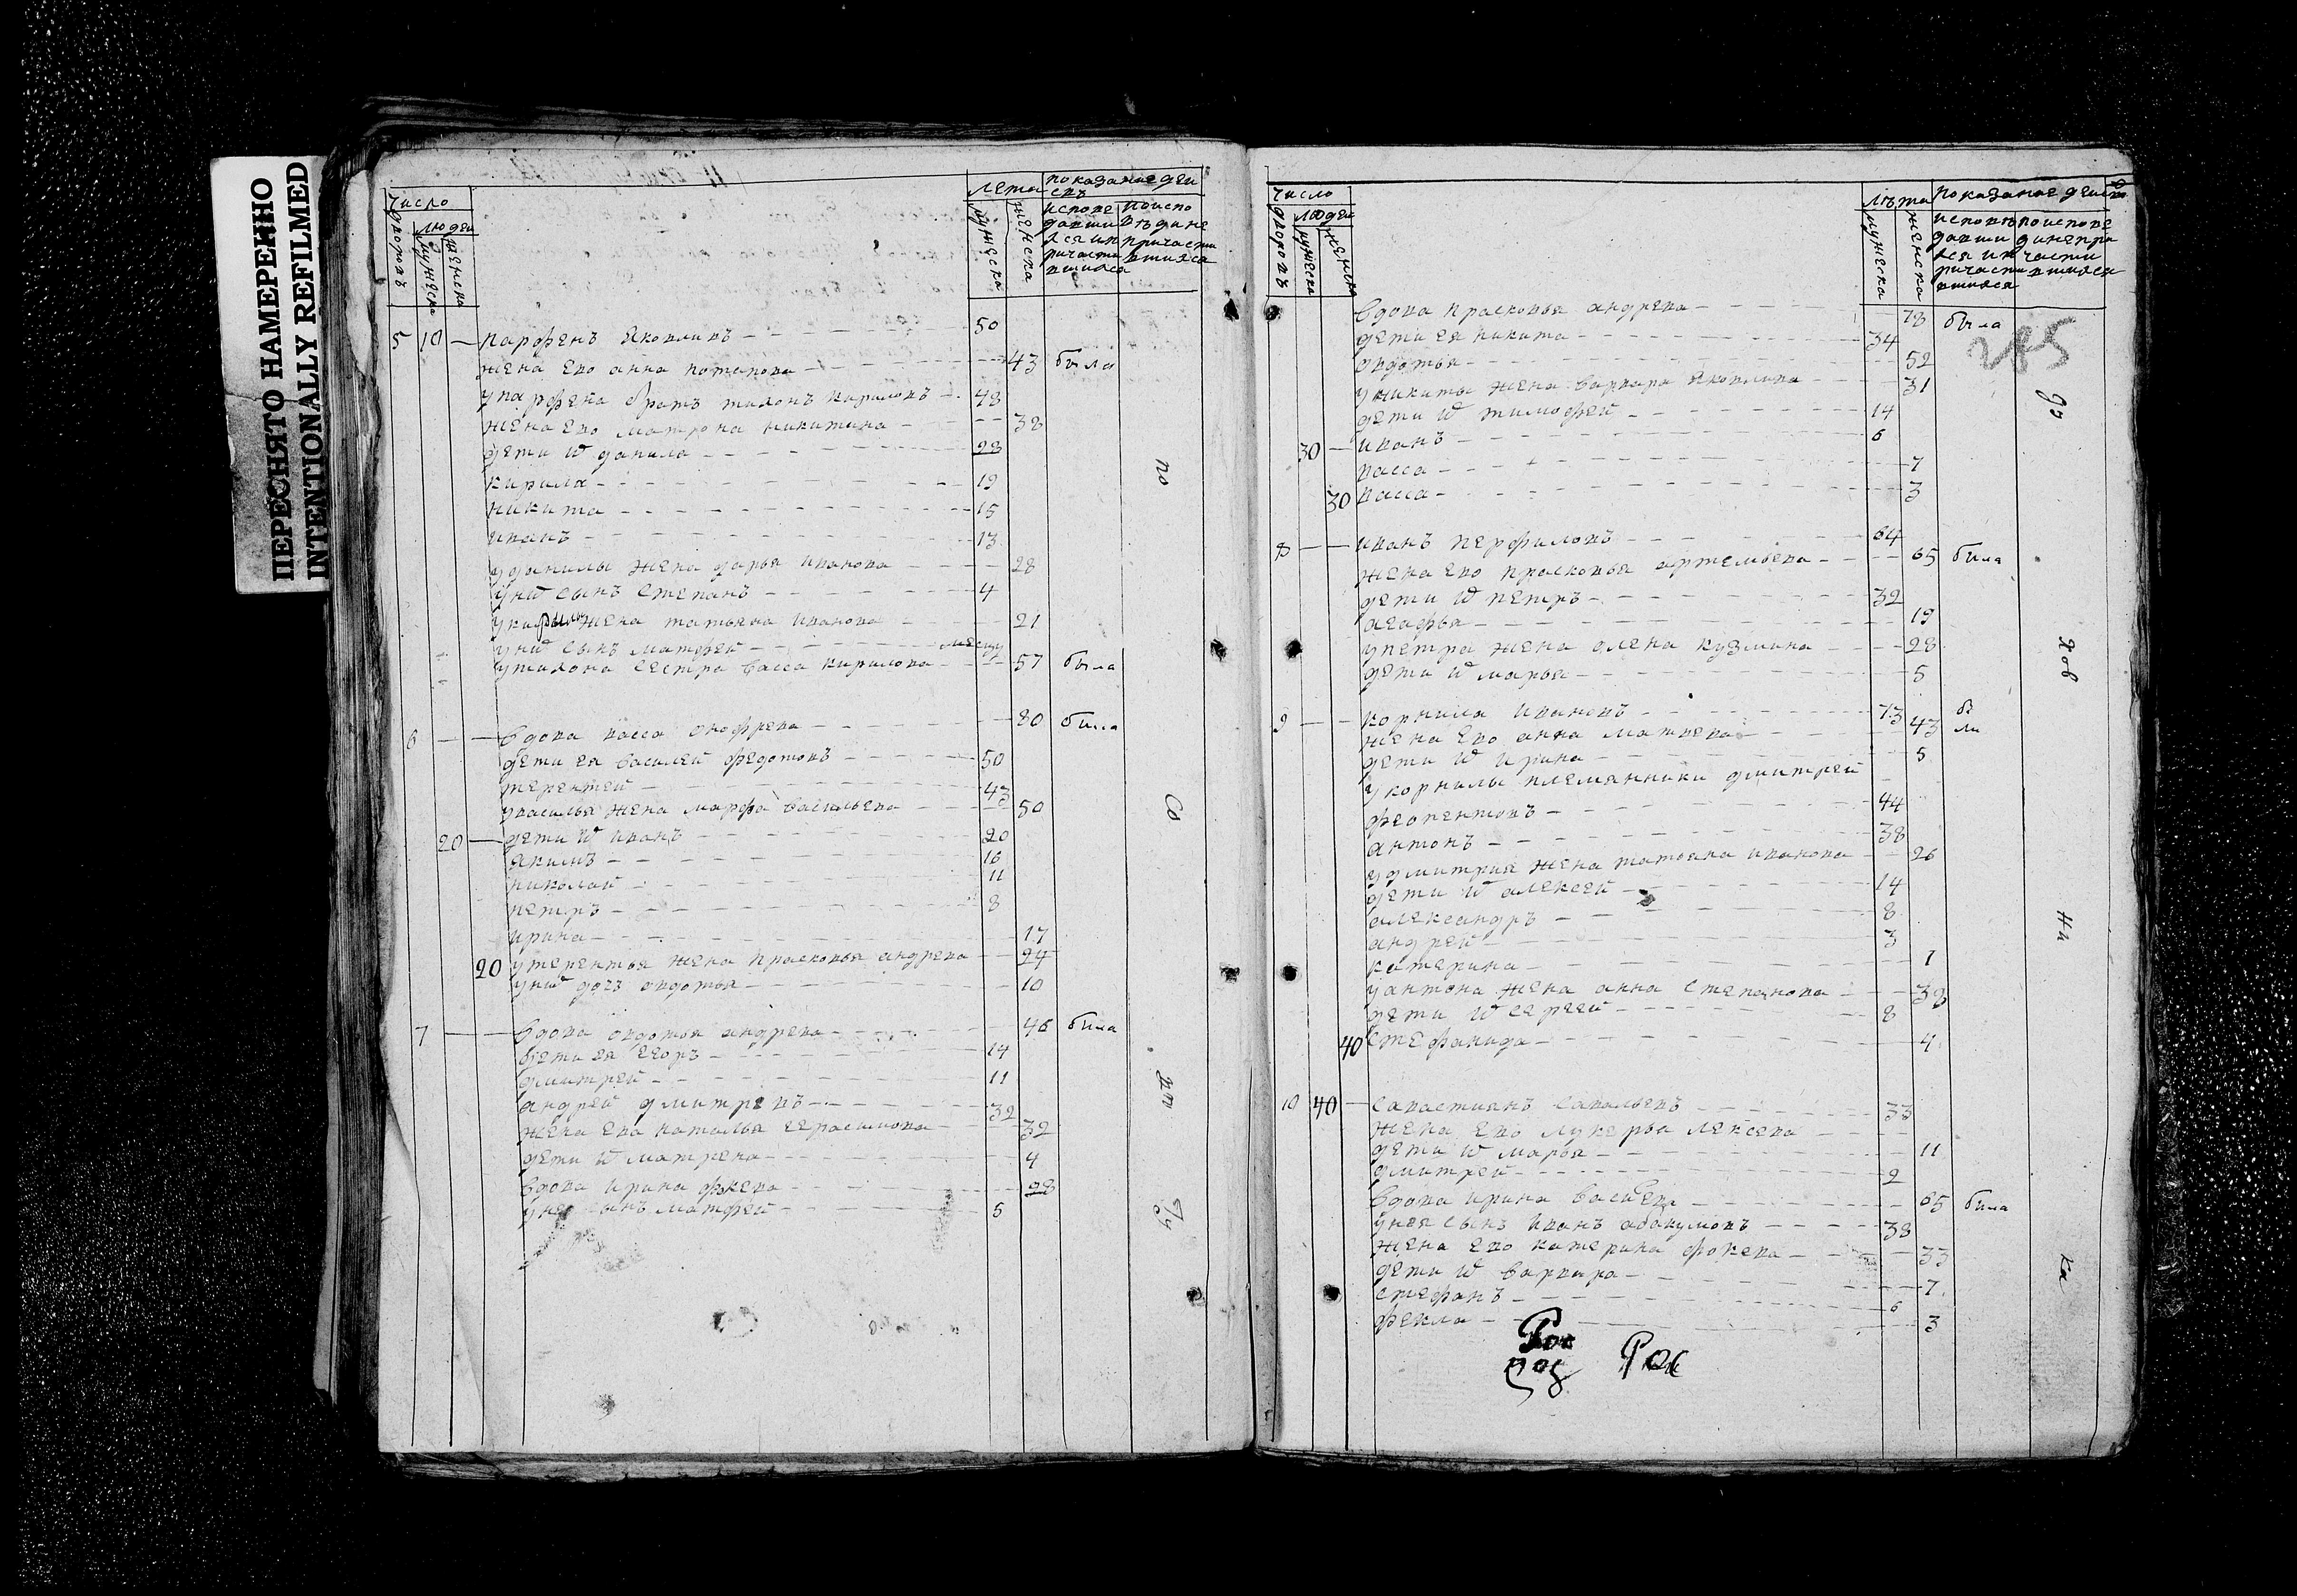 ПЕРЕСНЯТО НАМЕРЕННО
INTENTIONALLY REFILMED
число
дворовъ
людеи
мужеска
женска
лета
мужеска
женска
показание деи
ствъ
исповедавшиеся и причастившиеся
5 10 — парфенъ яковливъ — 50
жена ево анна потапова — 43 была
у парфена братъ тихонъ кириловъ — 48
жена ево матрона никитина — 38
дети ѿ данила — 28
кирила — 19
никита — 15
иванъ — 13
у данилы жена дарья иванова — 28
у нѿ сынъ степанъ — 4
у кирилы жена татьяна иванова — 21
у нѿ сынъ матфей —
у тихона сестра васса кирилова — 57 была
6 — вдова васса онофрева — 80 была
дети ея василей федотовъ — 50
терентей — 43
у василья жена марфа васильева — 50
20 — дети ѿ иванъ — 20
якимъ — 16
николай — 11
петръ — 8
ирина — 17
20 у терентья жена прасковья андрева — 24
у нѿ дочь авдотья — 10
7 — вдова авдотья андрева — 46 была
дети ея егоръ — 14
дмитрей — 11
андрей дмитревъ — 32
жена ево наталья герасимова — 32
дети ѿ матрена — 4
вдова ирина фокева — 28
сынъ матфей — 5
по
со
вт
гу
число
дворовъ
людеи
мужеска
женска
лѣта
мужеска
женска
показание деиствъ
вдова прасковья андрева — 78 была
285
дети ея никита — 34
авдотья — 52
у никиты жена варвара яковлива — 31
дети ѿ тимофей — 14
30 — иванъ — 6
васса — 7
30 васса — 3
8 — иванъ перфиловъ — 64
жена ево прасковья артемьева — 65 была
дети ѿ петръ — 32
агафья — 19
у петра жена алена кузмина — 28
дети ѿ марья — 5
9 — корнила ивановъ — 73 бы
жена ево анна матвева — 43 ли
дети ѿ ирина — 5
у корнилы племянники дмитрей
феопентовъ — 44
антонъ — 38
у дмитрия жена татьяна иванова — 26
дети ѿ алексей — 14
александръ — 8
андрей — 3
катерина — 1
у антона жена анна степанова — 38
дети ѿ сергей — 8
40 стефанида — 4
10 40 — савастиянъ савельевъ — 33
жена ево лукерья лексева
дети ѿ марья — 11
дмитрей — 2
вдова ирина — 65 была
у нея сынъ иванъ абакумовъ — 38
жена ево катерина фокева — 33
дети ѿ варвара — 7
стефанъ — 6
фекла — 3
дь
яков
ни
ка